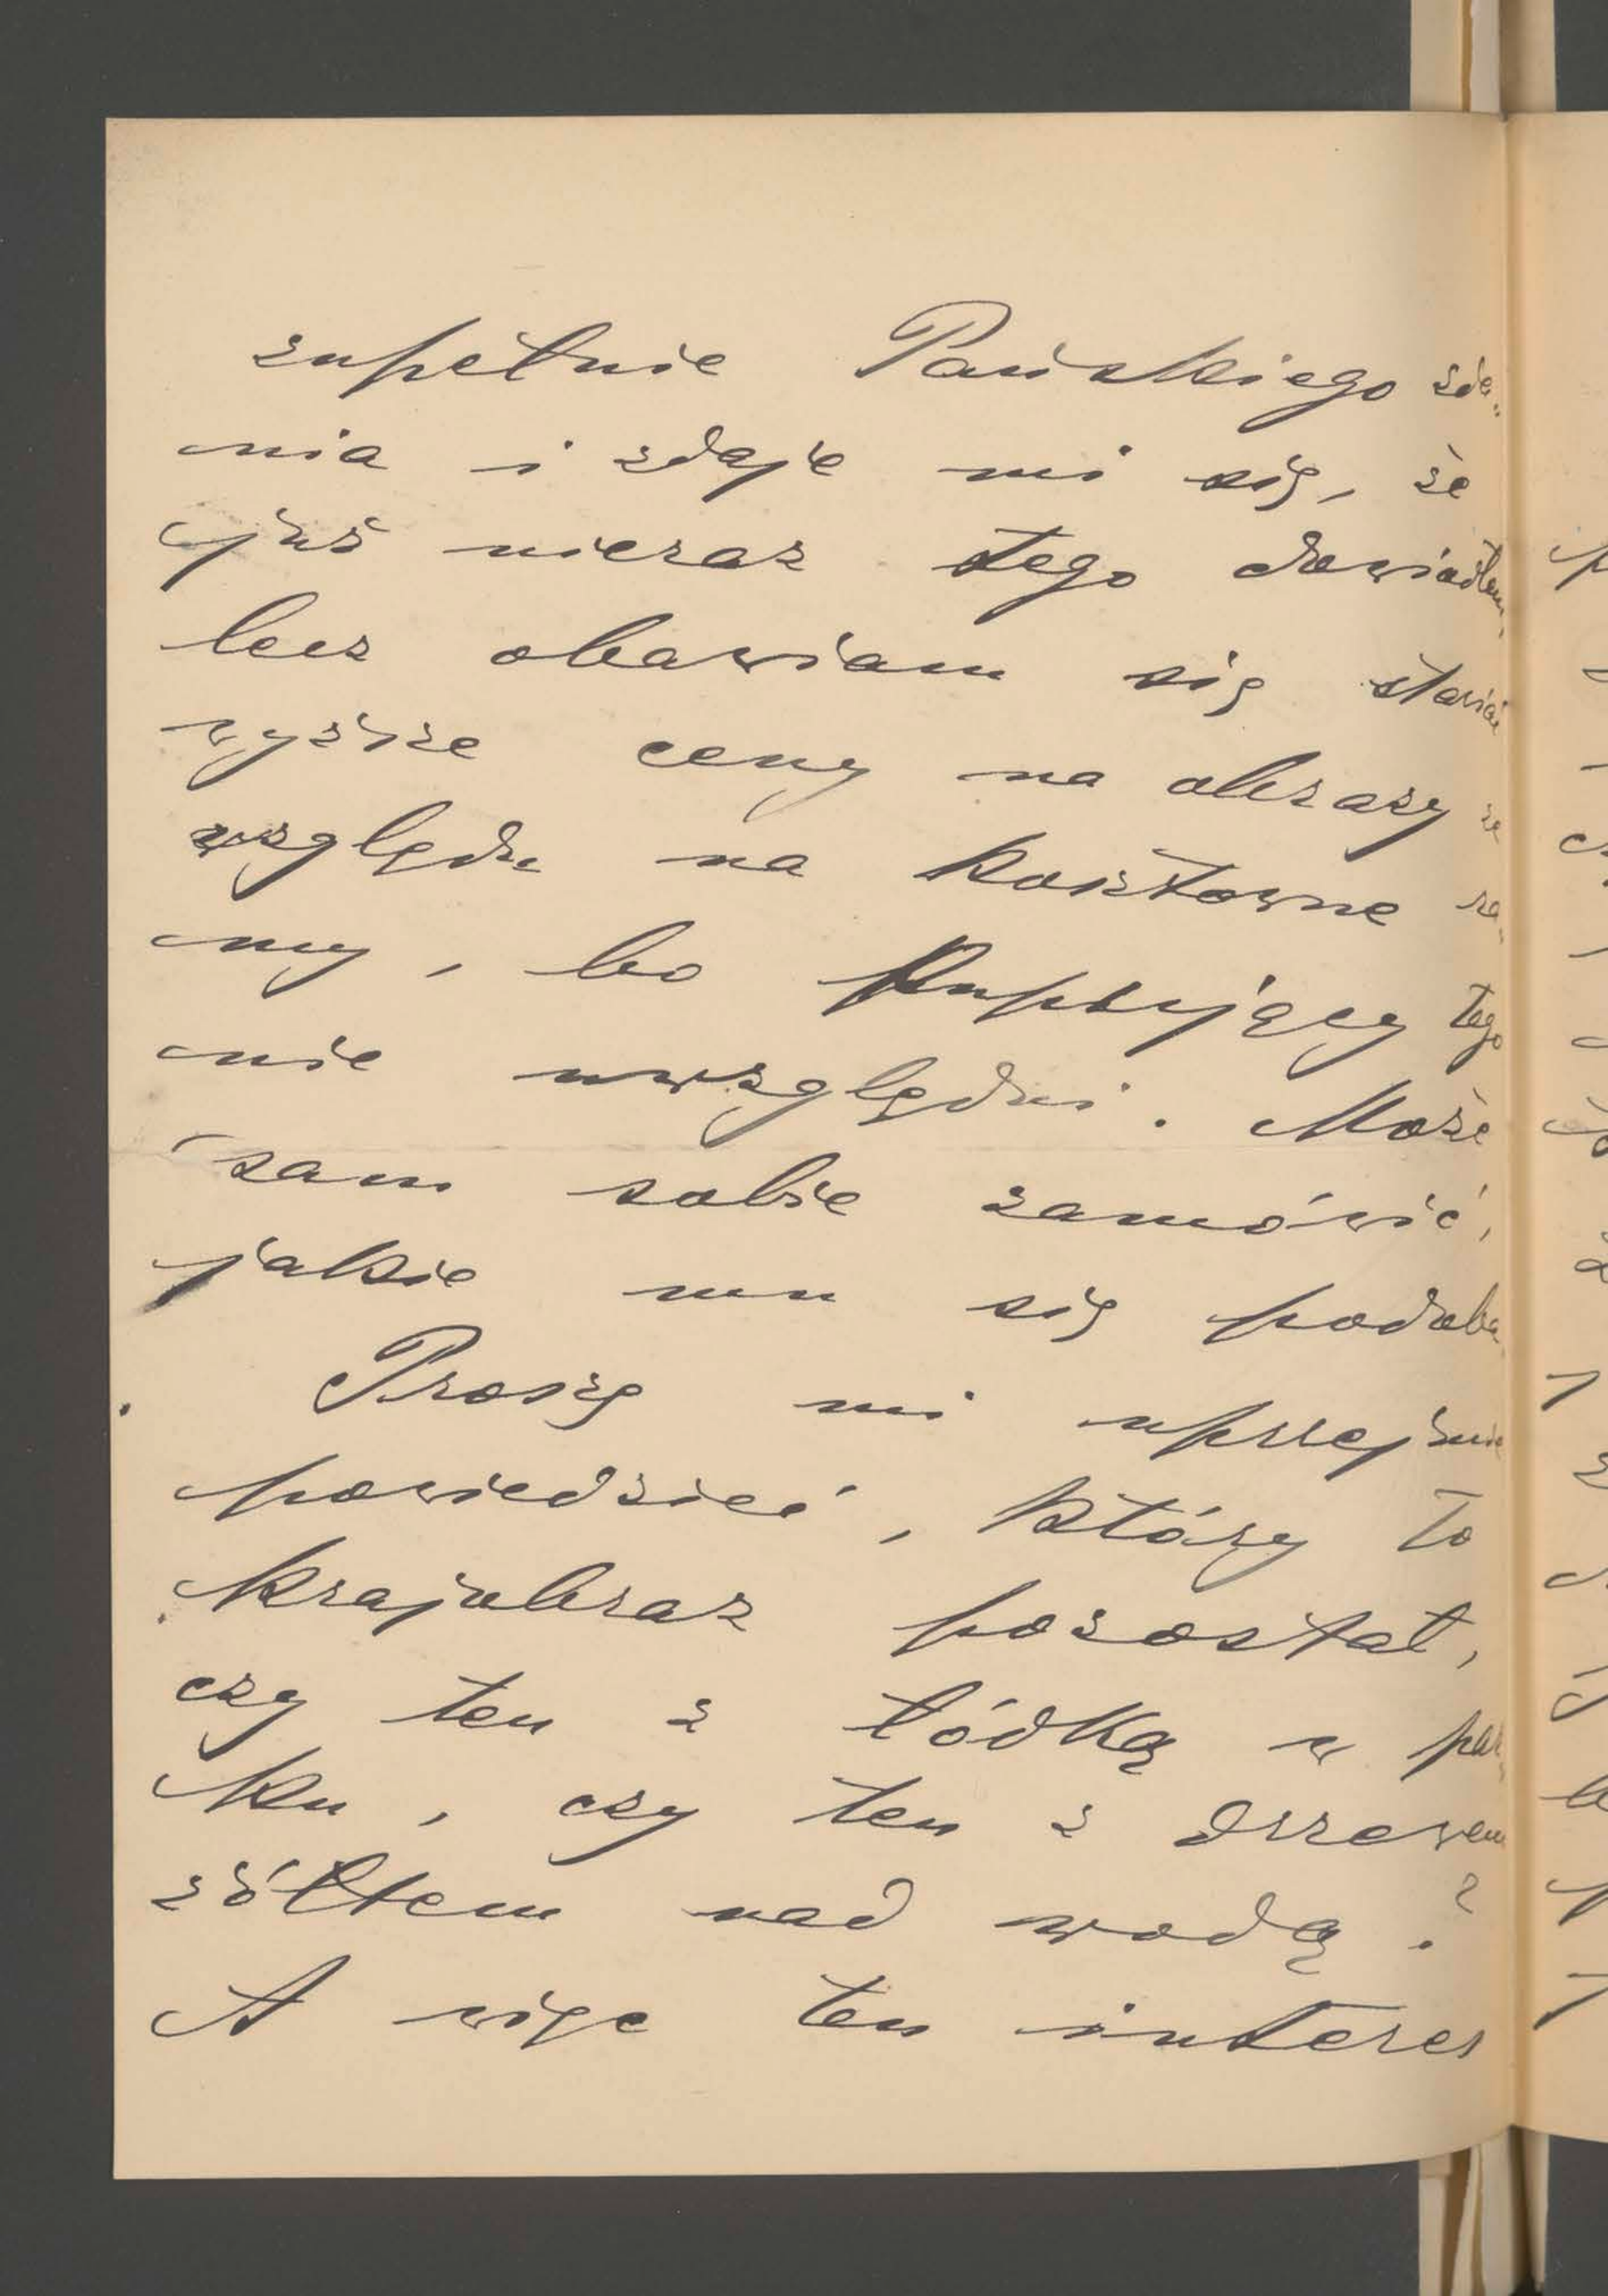 zupełnie Pańskiego zda-
nia i zdaje mi się, że
już nieraz tego dowiodłem,
lecz obawiam się stawiać
wyższe ceny na obrazy ze
względu na kosztowne ra-
my, bo kupujący tego
nie uwzględni. Może
sam sobie zamówić,
jakie mu się podoba.
Proszę mi uprzejmie
powiedzieć, który to
krajobraz pozostał,
czy ten z łódką w par-
ku, czy ten z drzewem
żółtem nad wodą?
A więc ten interes